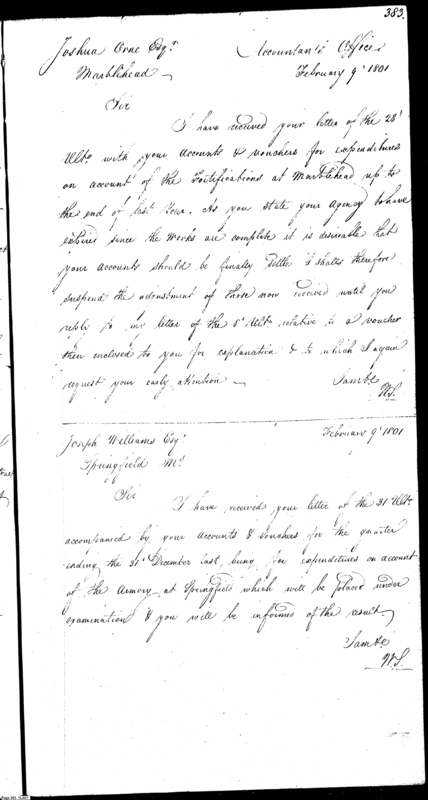 383.
Joshua Orne Esqr. Accountants Office
Marblehead February 9th 1801
Sir
I have received your letter of the 28th
Ulto. with your Accounts & vouchers for expenditures
on account of the Fortifications at Marblehead up to
the end of last Year. As you state your agency to have
expired since the Works are complete it is desirable that
your accounts should be finally settled I shall therefore
suspend the adjustment of those now received until you
reply to my letter of the 8th Ulto. relative to a voucher
then enclosed to you for explanation & to which I again
request your early attention
I am &c
WS.
Joseph Williams Esqr. February 9th 1801
Springfield Ms.
Sir
I have received your letter of the 31 Ulto.
accompanied by your accounts & vouchers for the quarter
ending the 31st December last, being for expenditures on account
of the Armory at Springfield which will be placed under
examination & you will be informed of the result.
I am &c
WS.